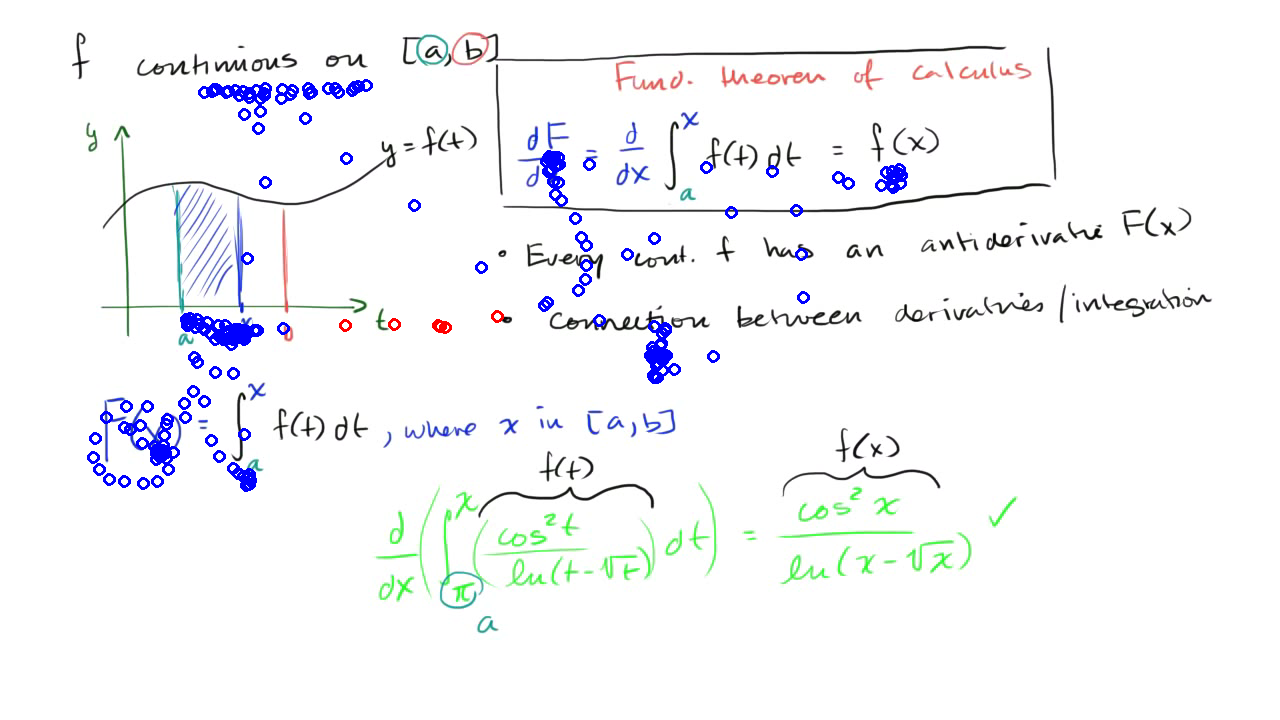 f continuous on [a, b]
Fund. theorem of calculus
dF/dx = d/dx ∫_a^x f(t) dt = f(x)
y
y = f(t)
a x b t
• Every cont. f has an antiderivative F(x)
• Connection between derivatives / integration
F(x) = ∫_a^x f(t) dt, where x in [a, b]
f(t) f(x)
d/dx (∫_π^x (cos²t / ln(t-√t)) dt) = cos²x / ln(x-√x) ✓
a